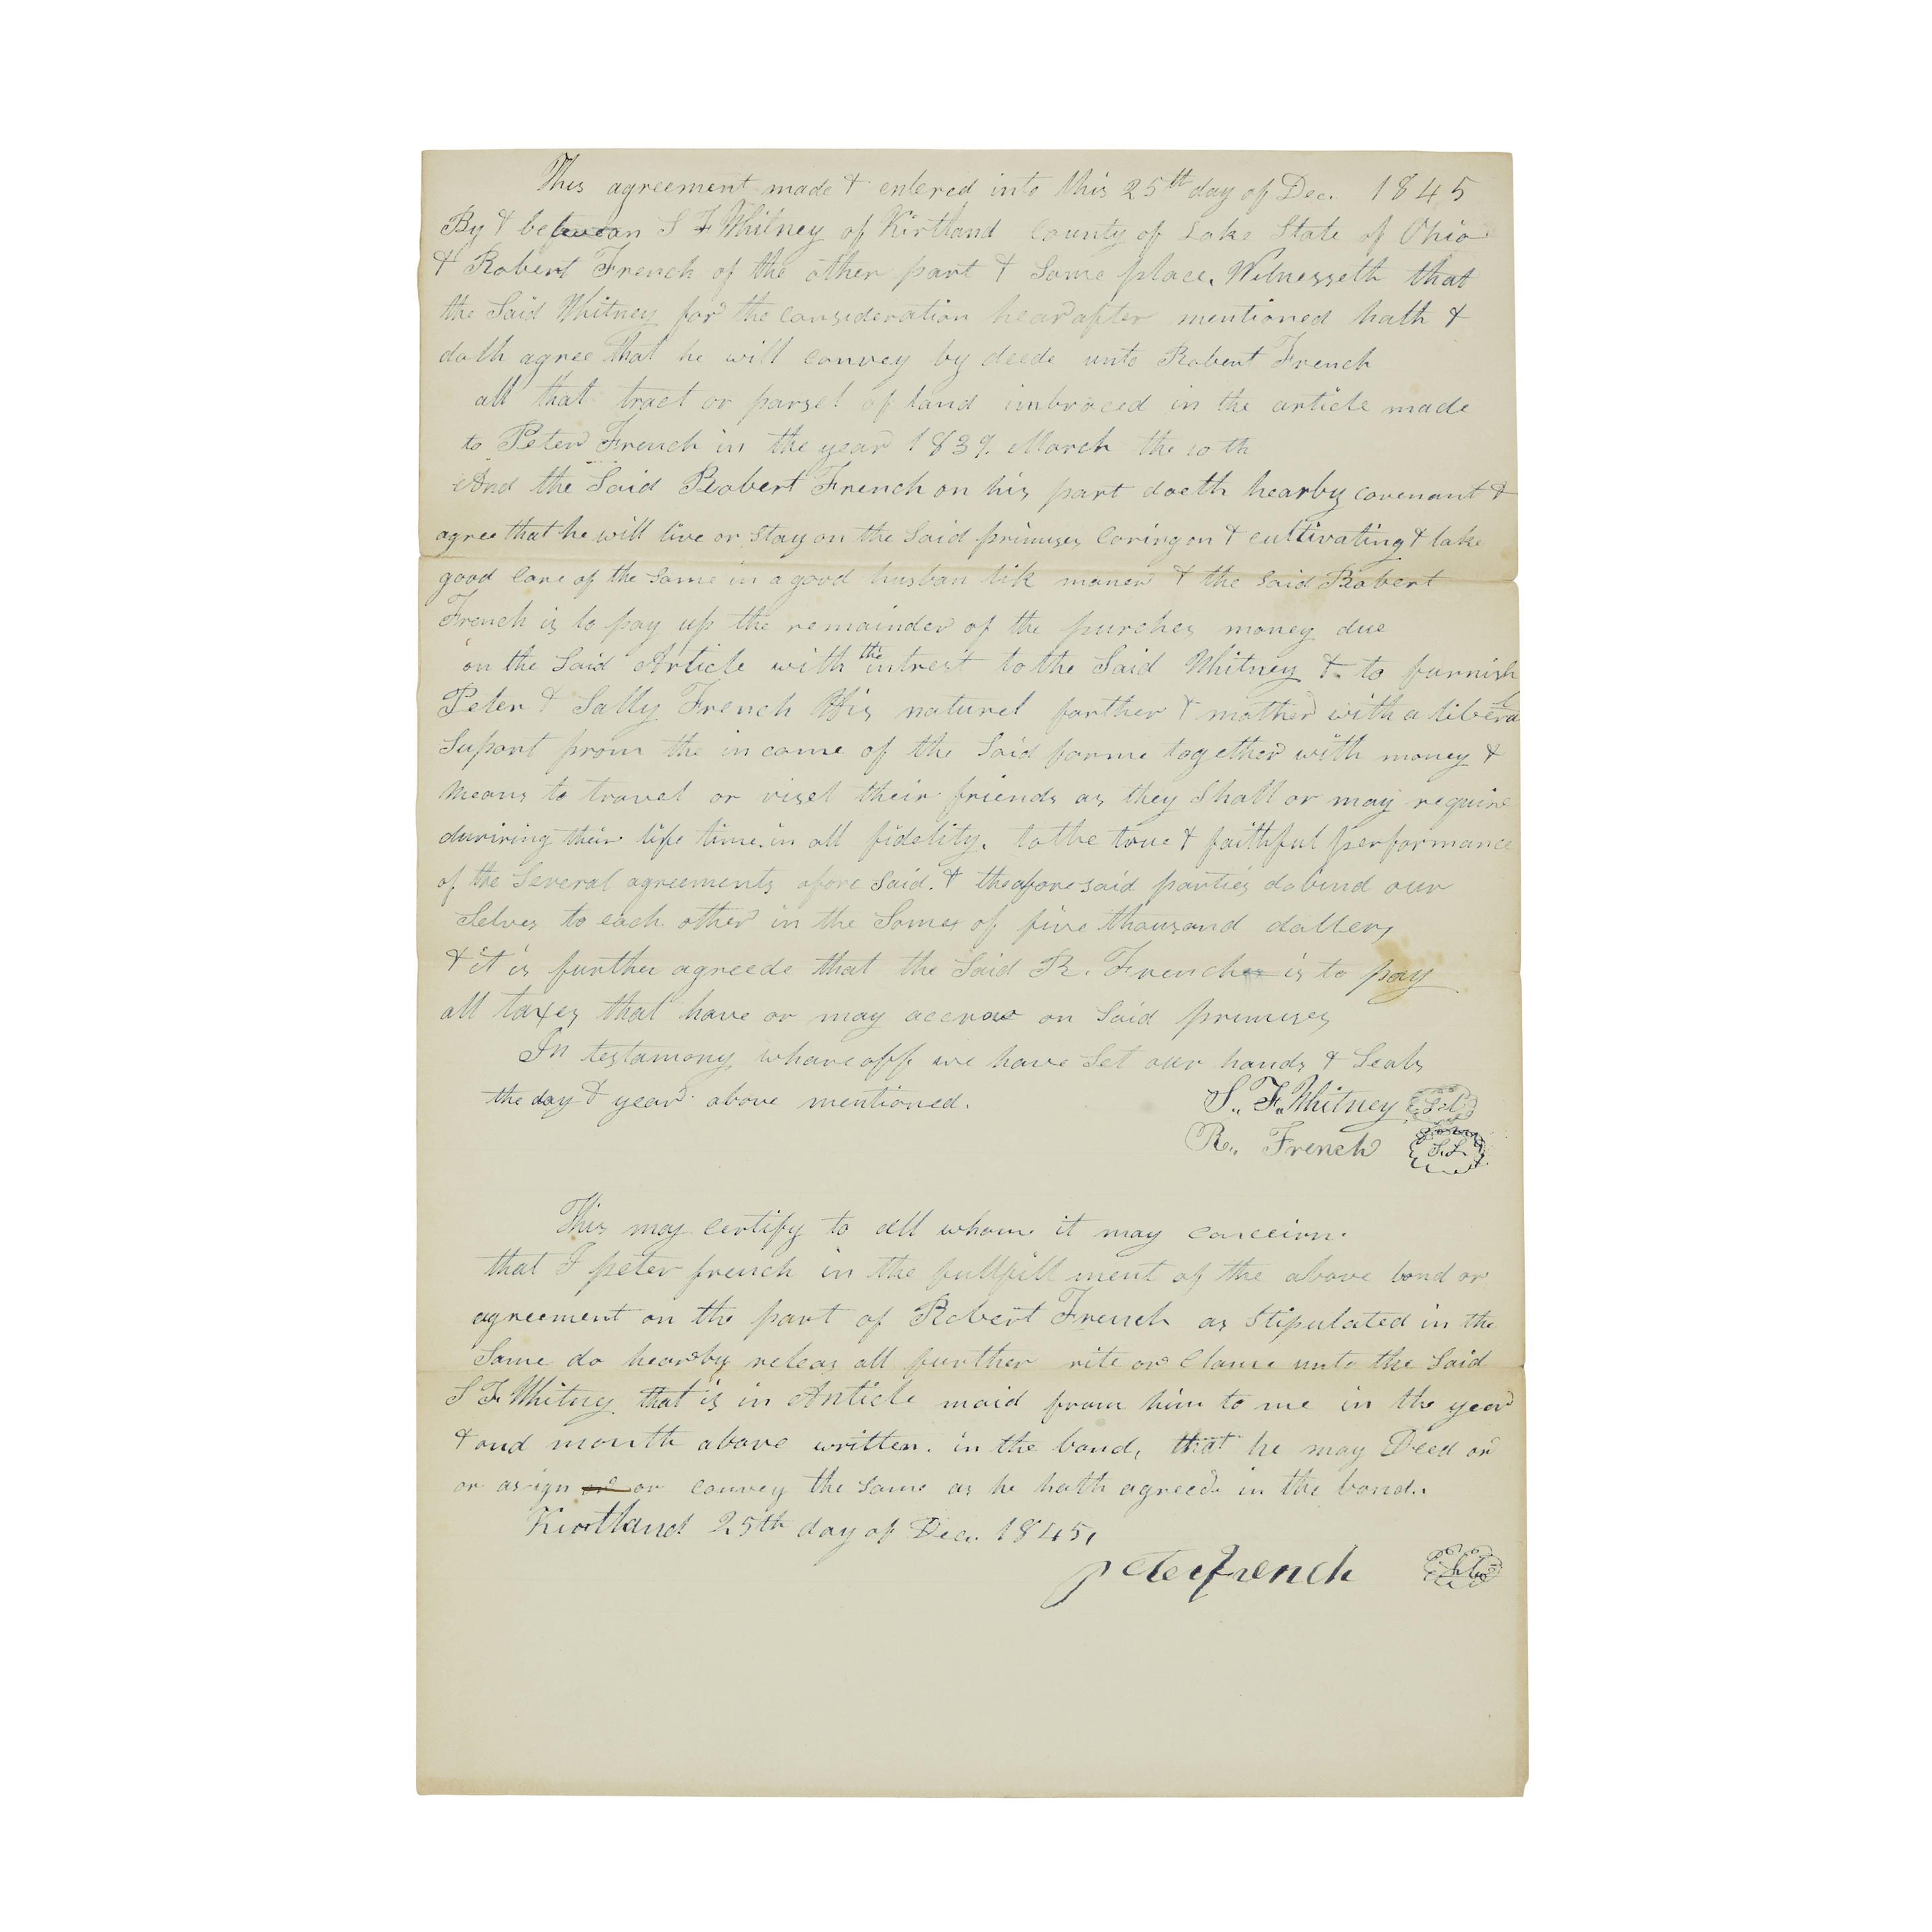 This agreement made & entered into this 25th day of Dec. 1845
By & between S F Whitney of Kirtland County of Lake State of Ohio
& Robert French of the other part & Same place. Witnesseth that
the Said Whitney for the consideration hearafter mentioned hath &
doth agree that he will convey by deede unto Robert French
all that tract or parsel of land imbraced in the article made
to Peter French in the year 1839. March the 10th
And the Said Robert French on his part doeth hearby covenant &
agree that he will live or stay on the Said primises Caring on & cultivating & take
good Care of the Same in a good husban lik maner & the Said Robert
French is to pay up the remainder of the purches money due
on the Said Article with the intrest to the Said Whitney & to furnish
Peter & Sally French His naturel farther & mother with a liberal
Suport from the in come of the Said farme together with money &
Means to travel or viset their friends as they Shall or may require
duriring their life time. in all fidelity. to the true & faithful performance
of the Several agreements afore Said. & the afore said parties do bind our
Selves to each other in the Somes of five thousand dollers
& it is further agreede that the Said R. French is to pay
all taxes that have or may accrow on Said primises
In testamony whareoff we have Set our hands & Seals
the day & year above mentioned.
S.. F.. Whitney
R.. French S.L.
This may certify to all whome it may conceirn.
that I peter french in the fullfill ment of the above bond or
agreement on the part of Robert French as Stipulated in the
Same do hearby releas all further rite or Clame unto the Said
S F Whitny that is in Article maid from him to me in the year
& and month above written. in the bond, that he may Deed or
or asign or convey the Same as he hath agreede in the bond..
Kirtland 25th day of Dec. 1845,
peter french